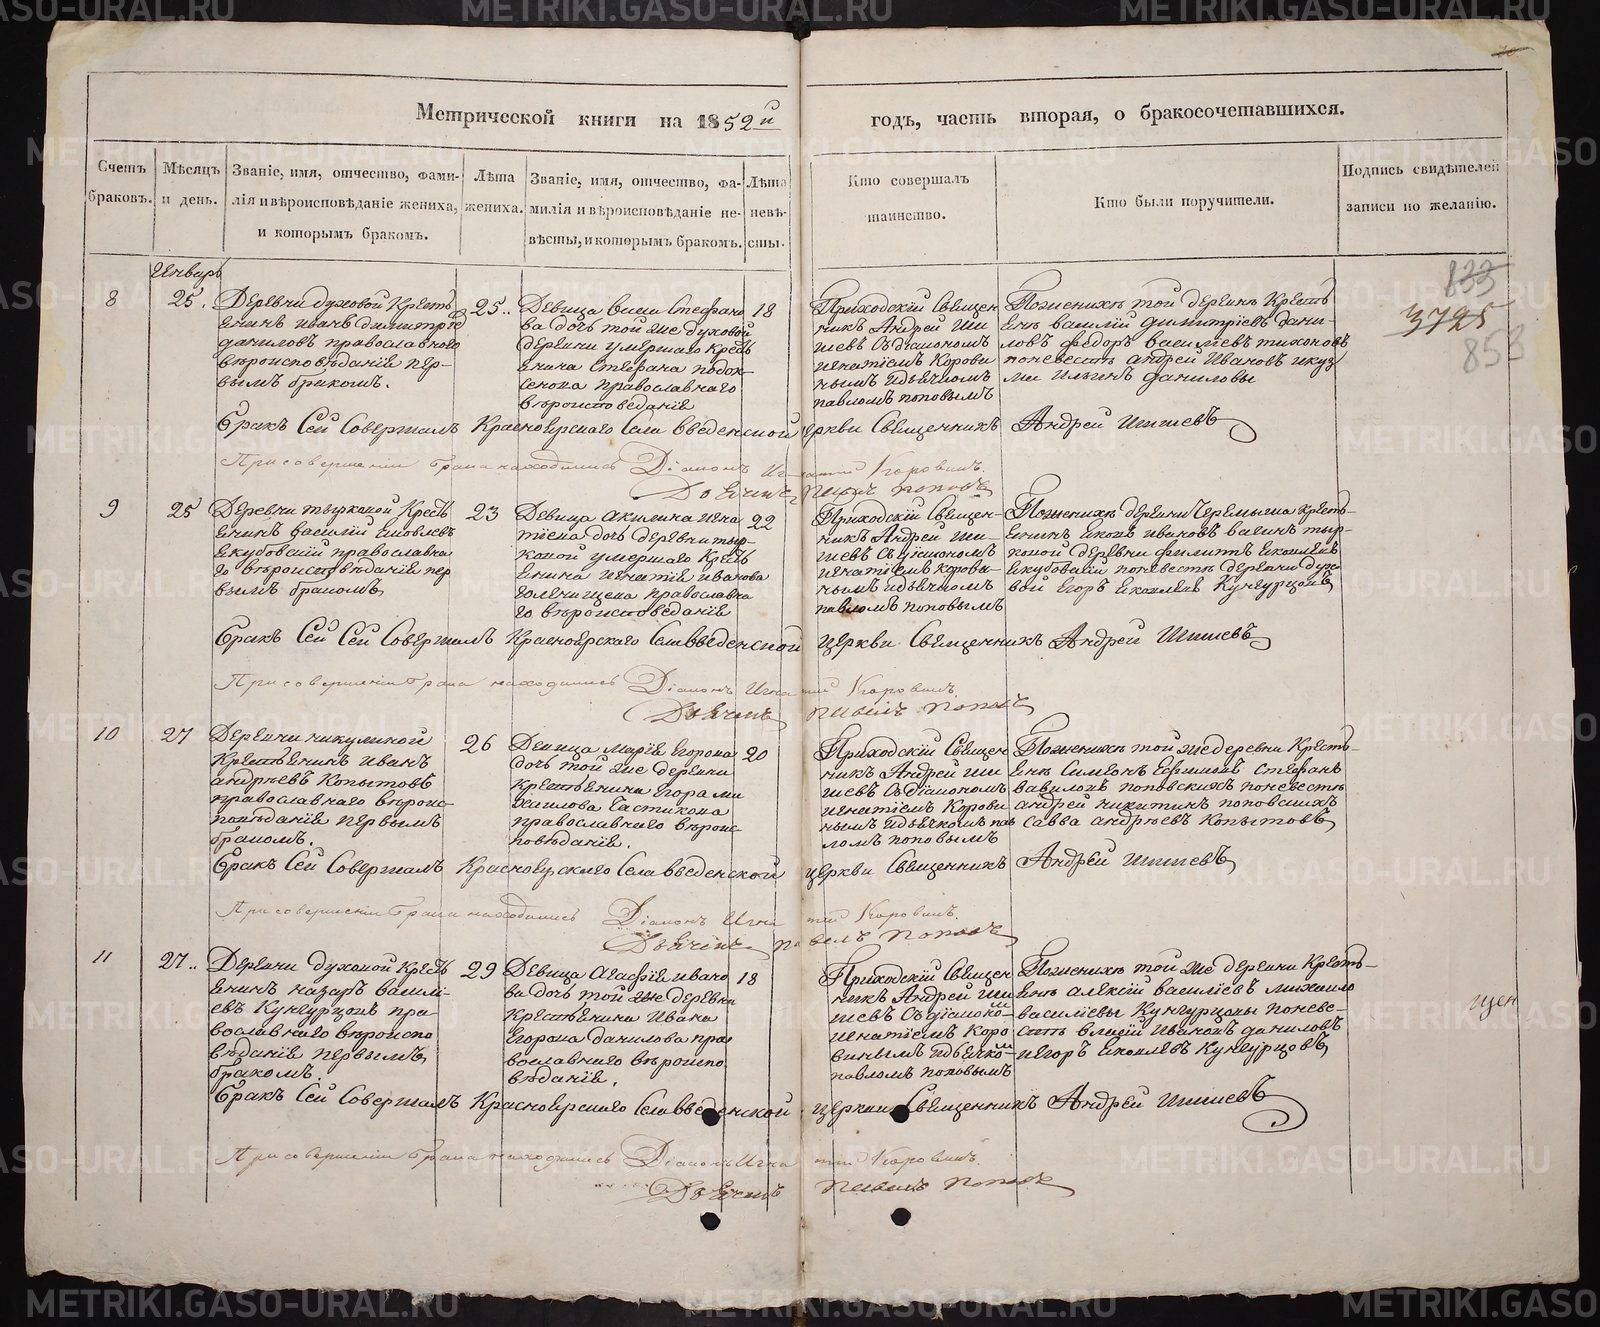 Метрической книги на 1852й годъ, часть вторая, о бракосочетавшихся.
Счетъ браковъ.
Мѣсяцъ и день.
Званіе, имя, отчество, фами-
лія и вѣроисповѣданіе жениха,
и которымъ бракомъ.
Лѣта
жениха.
Званіе, имя, отчество, фа-
милія и вѣроисповѣданіе не-
вѣсты, и которымъ бракомъ.
Лѣта
невѣ-
сты.
Кто совершалъ
таинство.
Кто были поручители.
Подпись свидѣтелей
записи по желанію.
Генварь
8
25.
Деревни духовой Кресть
янинъ иванъ димитріе
даниловъ православного
вѣроисповѣданія пер-
вымъ бракомъ.
25..
Девица Стефано
ва дочь той же духовой
деревни умершаго Кресть
янина Стефана
православнаго
вѣроисповеданія
18
Приходскій Священ
никъ Андрей Ши
шевъ съ діакономъ
игнатіемъ Корови
нымъ идьячкомъ
павломъ поповымъ
Пожениху той деревни Кресть
яне василий димитріевъ дани-
ловъ федоръ васильевъ тихоновъ
поневесте андрей Ивановъ икуз
ма ильинъ даниловы
833
3725
853
Бракъ Сей Совершалъ Красноярскаго Села введенской церкви Священникъ Андрей Шишевъ
При совершении брака находились Діаконъ Игнатий Коровинъ.
Дьячекъ Павелъ Поповъ
9
25
Деревни тырковой Кресть
янинъ василий яковлевъ
якубовский православна
го вѣроисповѣданія пер
вымъ бракомъ
23
Девица акилина игна
тиева дочь деревни тыр-
ковой умершаго Кресть
янина игнатия иванова
голенищева православна
го вѣроисповеданія
22
Приходскій Священ-
никъ Андрей Ши-
шевъ съ діакономъ
игнатіемъ корови-
нымъ идьячкомъ
павломъ поповымъ
Пожениху деревни Черемыша кресть-
янинъ яковъ ивановъ вагинъ тыр-
ковой деревни филипъ яковлевъ
якубовский поневесте деревни духо
вой егоръ яковлевъ Кунгурцовъ
Бракъ Сей Сей Совершалъ Красноярскаго Села введенской церкви Священникъ Андрей Шишевъ
При совершении брака находились Діаконъ Игнатий Коровинъ.
Дьячекъ Павелъ Поповъ
10
27
Деревни никулиной
Крестьянинъ иванъ
андрѣевъ Копытовъ
православнаго вѣроис-
повѣданія первымъ
бракомъ.
26
Девица марія Егорова
дочь той же деревни
крестьянина егора ми
хаилова Частикова
православнаго вѣроис
повѣданія.
20
Приходскій Священ
никъ Андрей ши
шевъ съ діакономъ
игнатіемъ Корови
нымъ идьячкомъ пав
ломъ поповымъ
Пожениху той же деревни Кресть-
яне Симеонъ Ефимовъ стефанъ
вавиловъ поповскихъ поневесте
андрей никитинъ поповскихъ
савва андрѣевъ Копытовъ
Бракъ Сей Совершалъ Красноярскаго Села введенской церкви Священникъ Андрей Шишевъ
При совершении брака находились Діаконъ Игнатий Коровинъ.
Дьячекъ Павелъ Поповъ
11
27..
Деревни духовой Кресть
янинъ назаръ васили-
евъ Кунгурцовъ пра-
вославнаго вѣроиспо
вѣданія первымъ
бракомъ.
29
Девица агафія ивано
ва дочь той же деревни
Крестьянина Ивана
Егорова данилова пра
вославнаго вѣроиспо
вѣданія.
18
Приходскій Священ
никъ Андрей Ши
шевъ съ діакономъ
игнатіемъ Коро
винымъ идьячкомъ
павломъ поповымъ
Пожениху той же деревни Кресть-
яне алексій василіевъ михаило
василіевы Кунгурцовы поневе-
сте власий ивановъ даниловъ
иегоръ яковлевъ Кунгурцовъ
Бракъ Сей Совершалъ Красноярскаго Села введенской церкви Священникъ Андрей Шишевъ
При совершении брака находились Діаконъ Игнатий Коровинъ.
Дьячекъ Павелъ Поповъ
METRIKI.GASO-URAL.RU